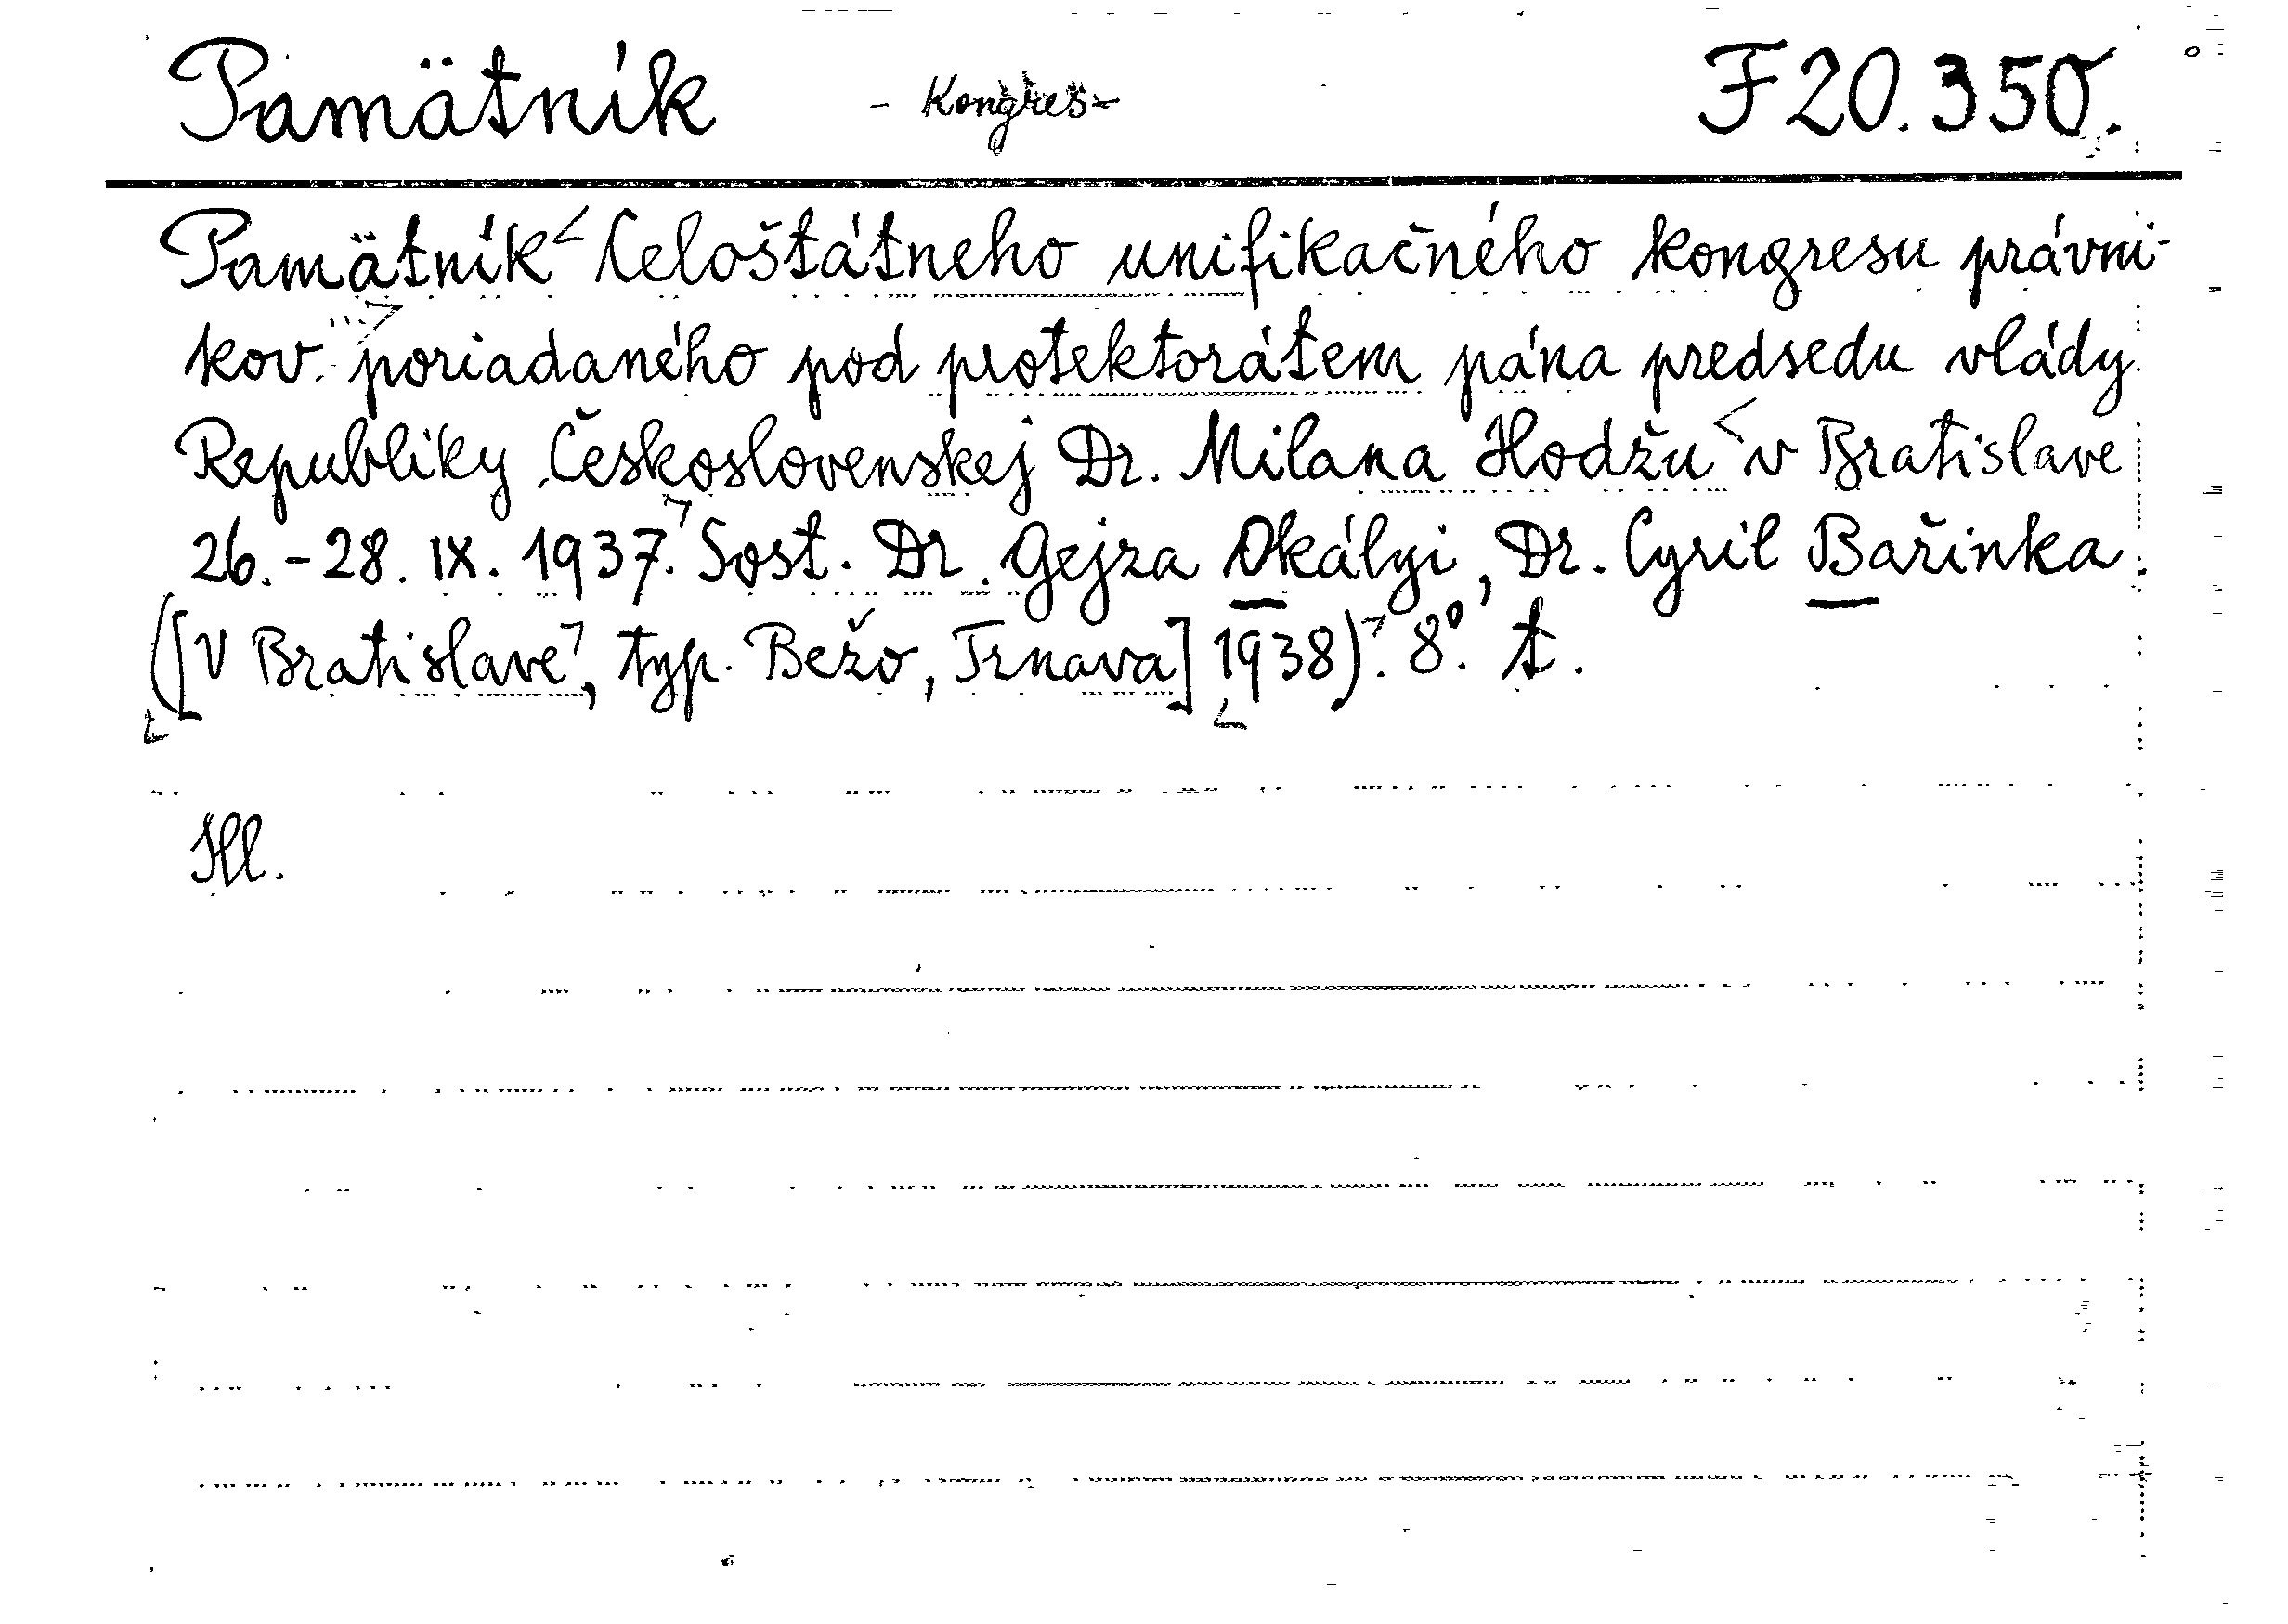 Pamätník - Kongres - F 20.350.
Pamätník Celoštátneho unifikačného kongresu právni-
kov poriadaného pod protektorátem pána predsedu vlády
Republiky Československej Dr. Milana Hodžu v Bratislave
26.-28. IX. 1937. Sost. Dr. Gejza Okályi, Dr. Cyril Bařinka.
([V Bratislave, typ. Bežo, Trnava] 1938). 8°. t.
Hl.